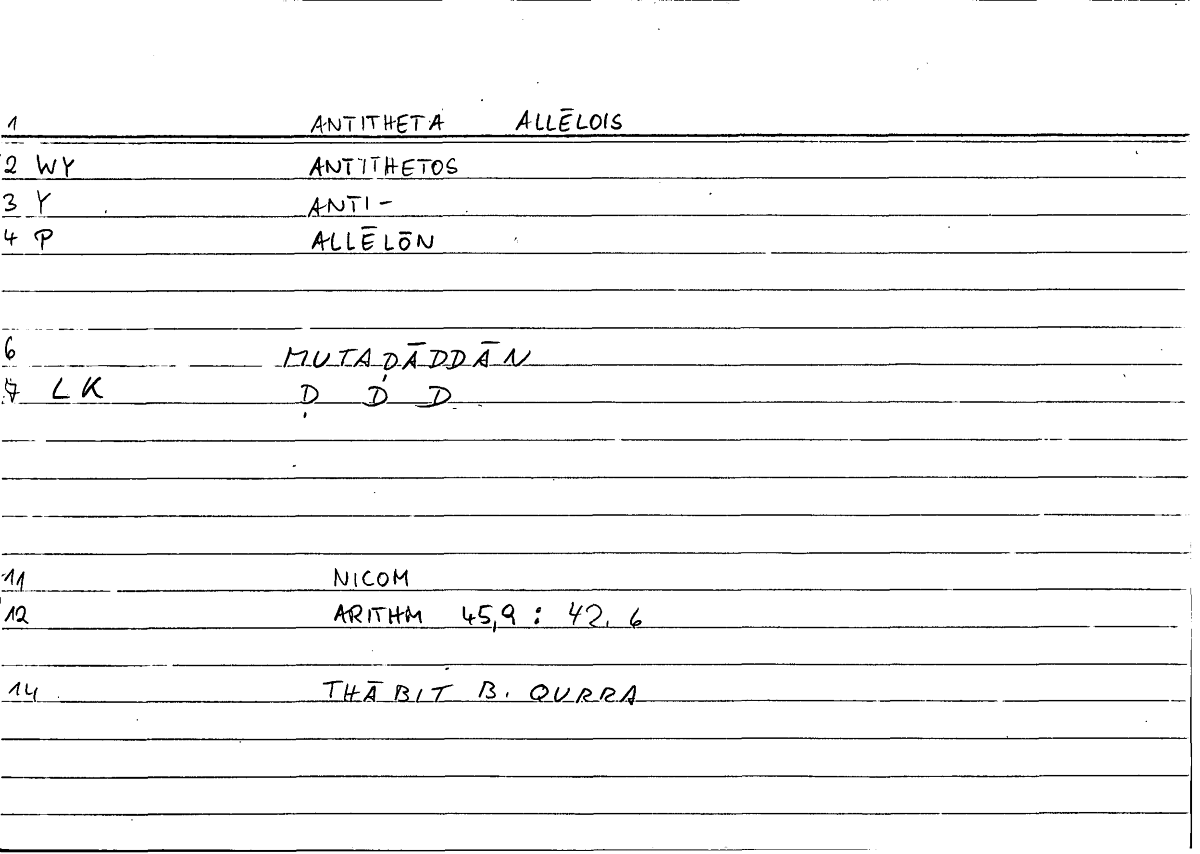 1 ANTITHETA ALLĒLOIS
2 WY ANTITHETOS
3 Y ANTI-
4 P ALLĒLŌN
6 MUTAḌĀDDĀN
7 LK Ḍ Ḍ D
11 NICOM
12 ARITHM 45,9 : 42.6
14 THĀBIT B. QURRA